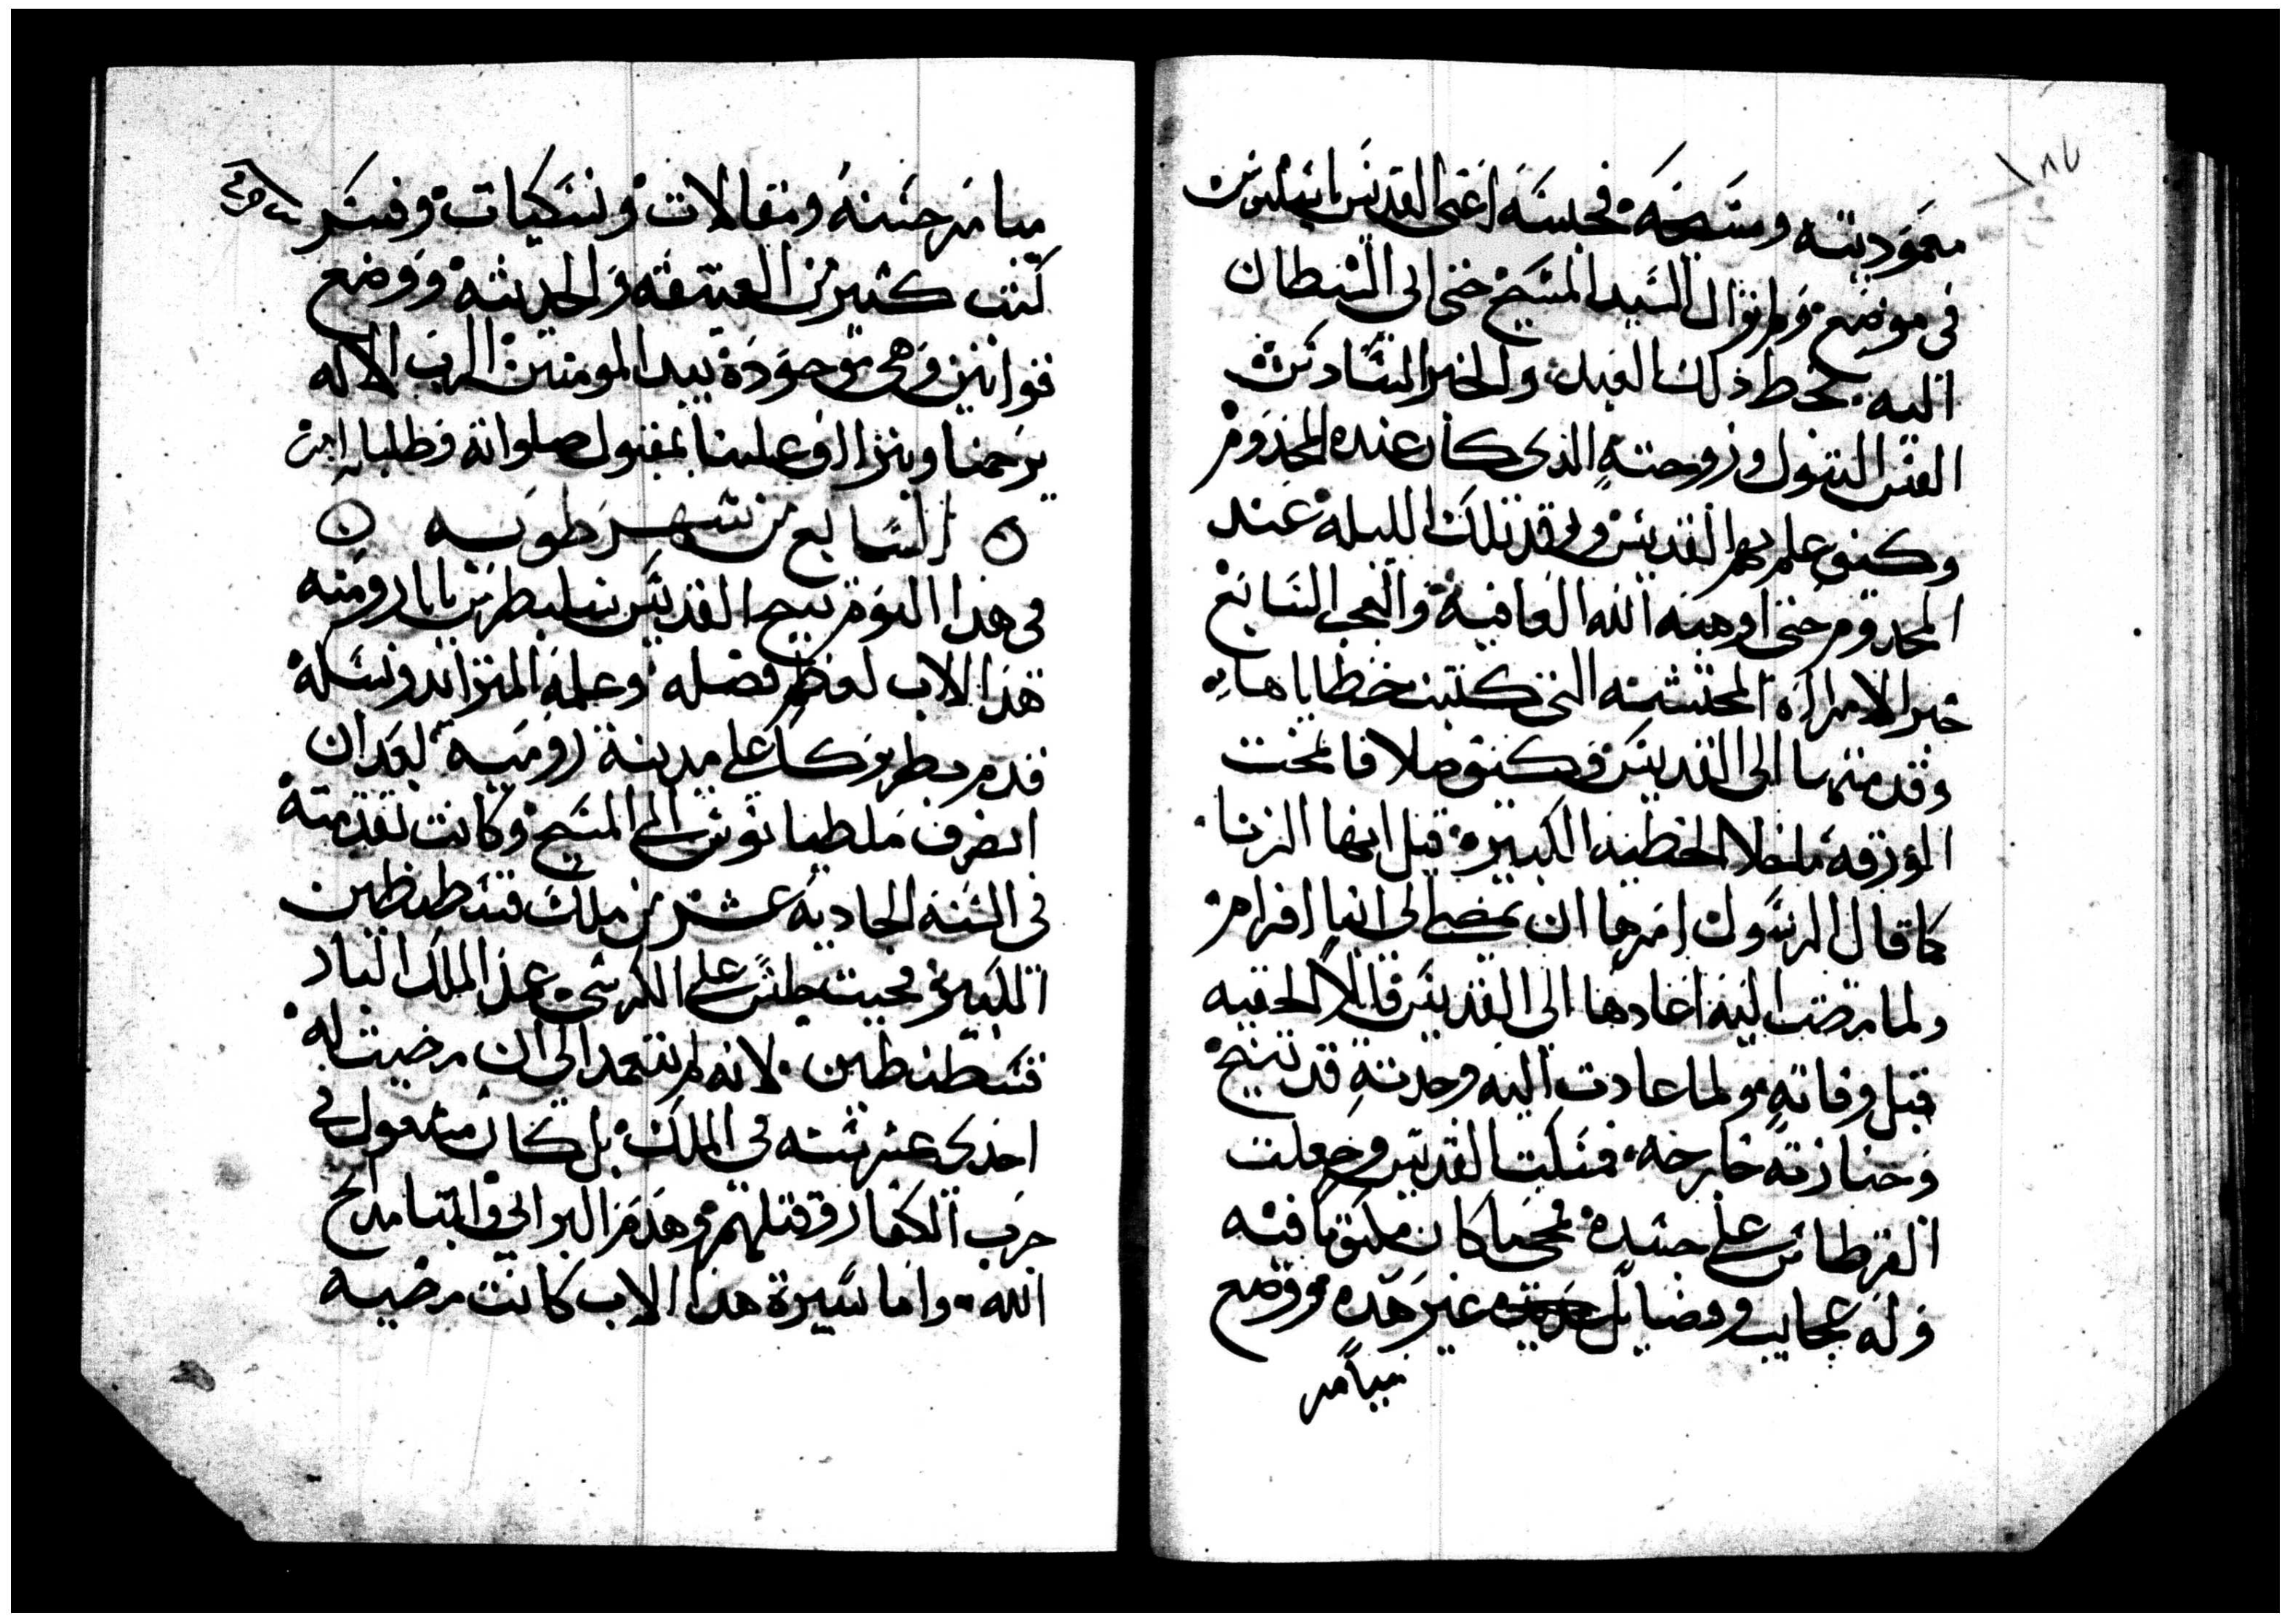 معموديته ومسحه فحبسه اعني القديس باسيليوس
في موضع ولم يزال السيد المسيح حتى الى الشيطان
اليه بخط ذلك العبد والخبر السادس
القس البتول وزوجته الذى كان عنده المجذوم
وكيف علم بهم القديس ورقد تلك الليله عند
المجدوم حتى اوهبه الله العافيه والعجب السابع
خبر الامراه المحتشمه التى كتبت خطاياها
وقدمتها الى القديس وكيف صلا فانمحت
الورقه ماخلا الخطيه الكبيره قيل انها الزنا
كما قال الرسول امرها ان تمضي الى انبا افرام
ولما مضت اليه اعادها الى القديس قايلا الحقيه
قبل وفاته ولما عادت اليه وجدته قد تنيح
وجنازته خارجه فبكت القديس وجعلت
القرطاس على جسده فمحى ما كان مكتوبا فيه
وله عجايب وفضايل غير هذه ووضع
ميامر
١٨٢
ميامر حسنه ومقالات ونسكيات وفسر
كتب كثير من العتيقه والحديثه ووضع
قوانين وهى موجوده بيد المومنين الرب الاله
يرحمنا ويتراف علينا بمقبول صلواته وطلباته امين
السابع من شهر طوبه
فى هدا اليوم تنيح القديس سلبطرس بابا روميه
هذا الاب لعظم فضله وعلمه المتزايد ونسكه
قدم بطريركا على مدينة روميه بعد ان
انصرف ملطيانوس الى المسيح وكانت تقدمته
في السنه الحاديه عشر من ملك قسطنطين
الكبير وحيث جلس على الكرسي عمد الملك البار
قسطنطين لانه لم يتعمد الى ان مضيت له
احدى عشر سنه في الملك بل كان مشغول في
حرب الكفار وقتلهم وهدم البرابي والتمامدح
الله واما سيرة هدا الاب كانت مرضيه